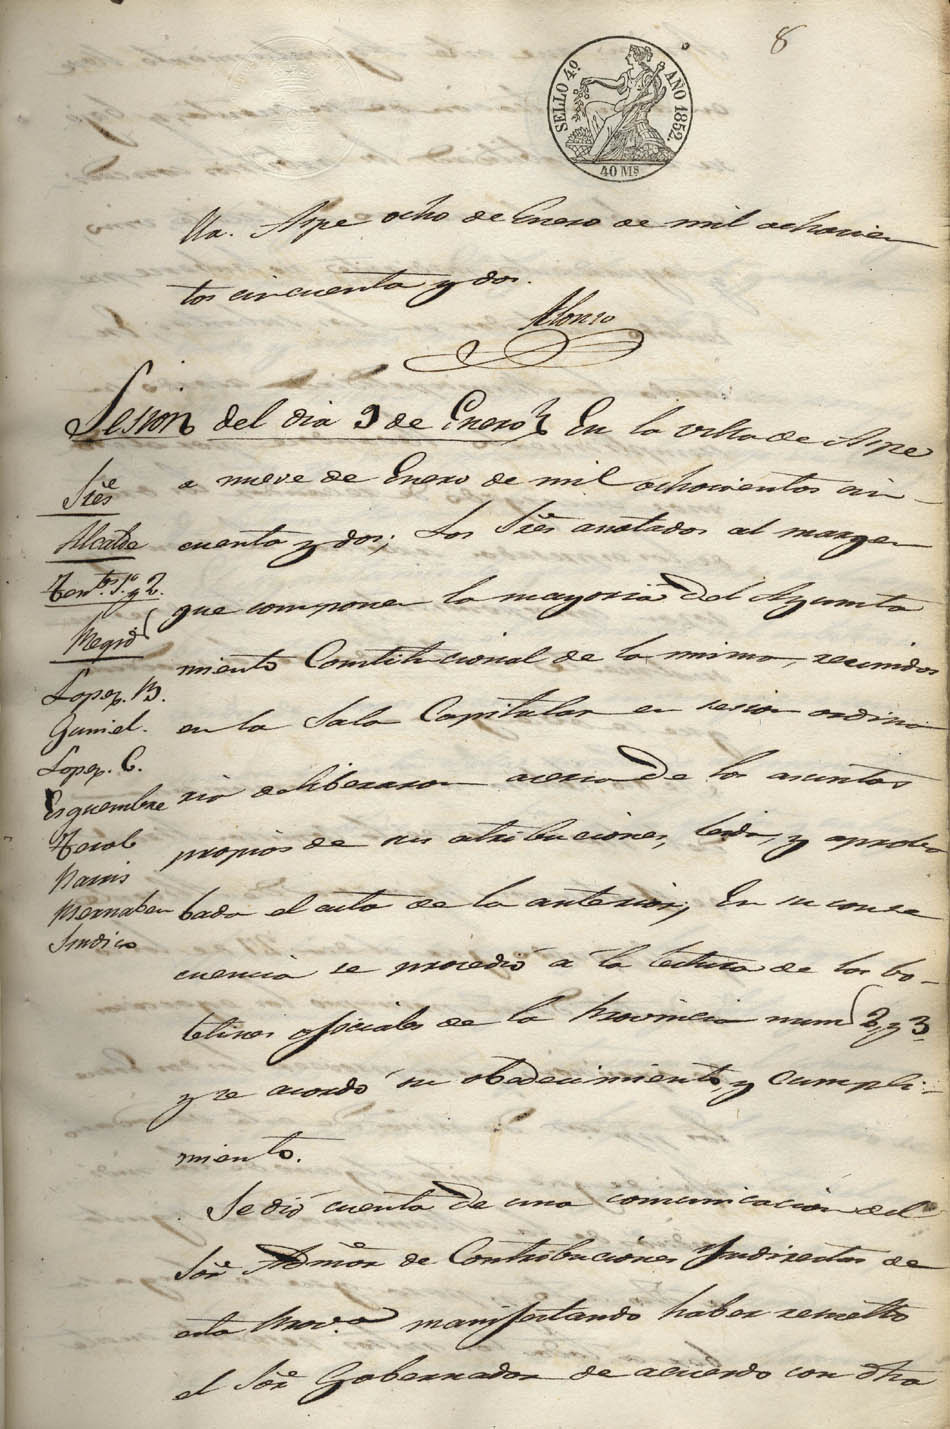 8
SELLO 4º AÑO 1852.
40 Ms
Aspe ocho de Enero de mil ochocien
tos cincuenta y dos.
Alonso
Sesion del dia 9 de Enero En la villa de Aspe
a nueve de Enero de mil ochocientos cin-
cuenta y dos; Los Sres anotados al margen
que componen la mayoria del Ayunta
miento Constitucional de la misma, reunidos
en la Sala Capitular en sesion ordina
ria deliberaron acerca de los asuntos
propios de sus atribuciones, leida, y aproba
bada el acta de la anterior; En su conse
cuencia se procedió a la lectura de los bo-
letines oficiales de la Provincia num 2, y 3
y se acordó su obedecimiento, y cumpli-
miento.
Se dió cuenta de una comunicacion del
Sor Admor de Contribuciones Yndirectas de
esta Prova manifestando haber resuelto
el Sor Gobernador de acuerdo con dha
Sres
Alcalde
Tentes 1º y 2.
Regid
Lopez. B.
Gumiel.
Lopez. C.
Esquembre
Terol
Pavis
Bernabeu
Sindico